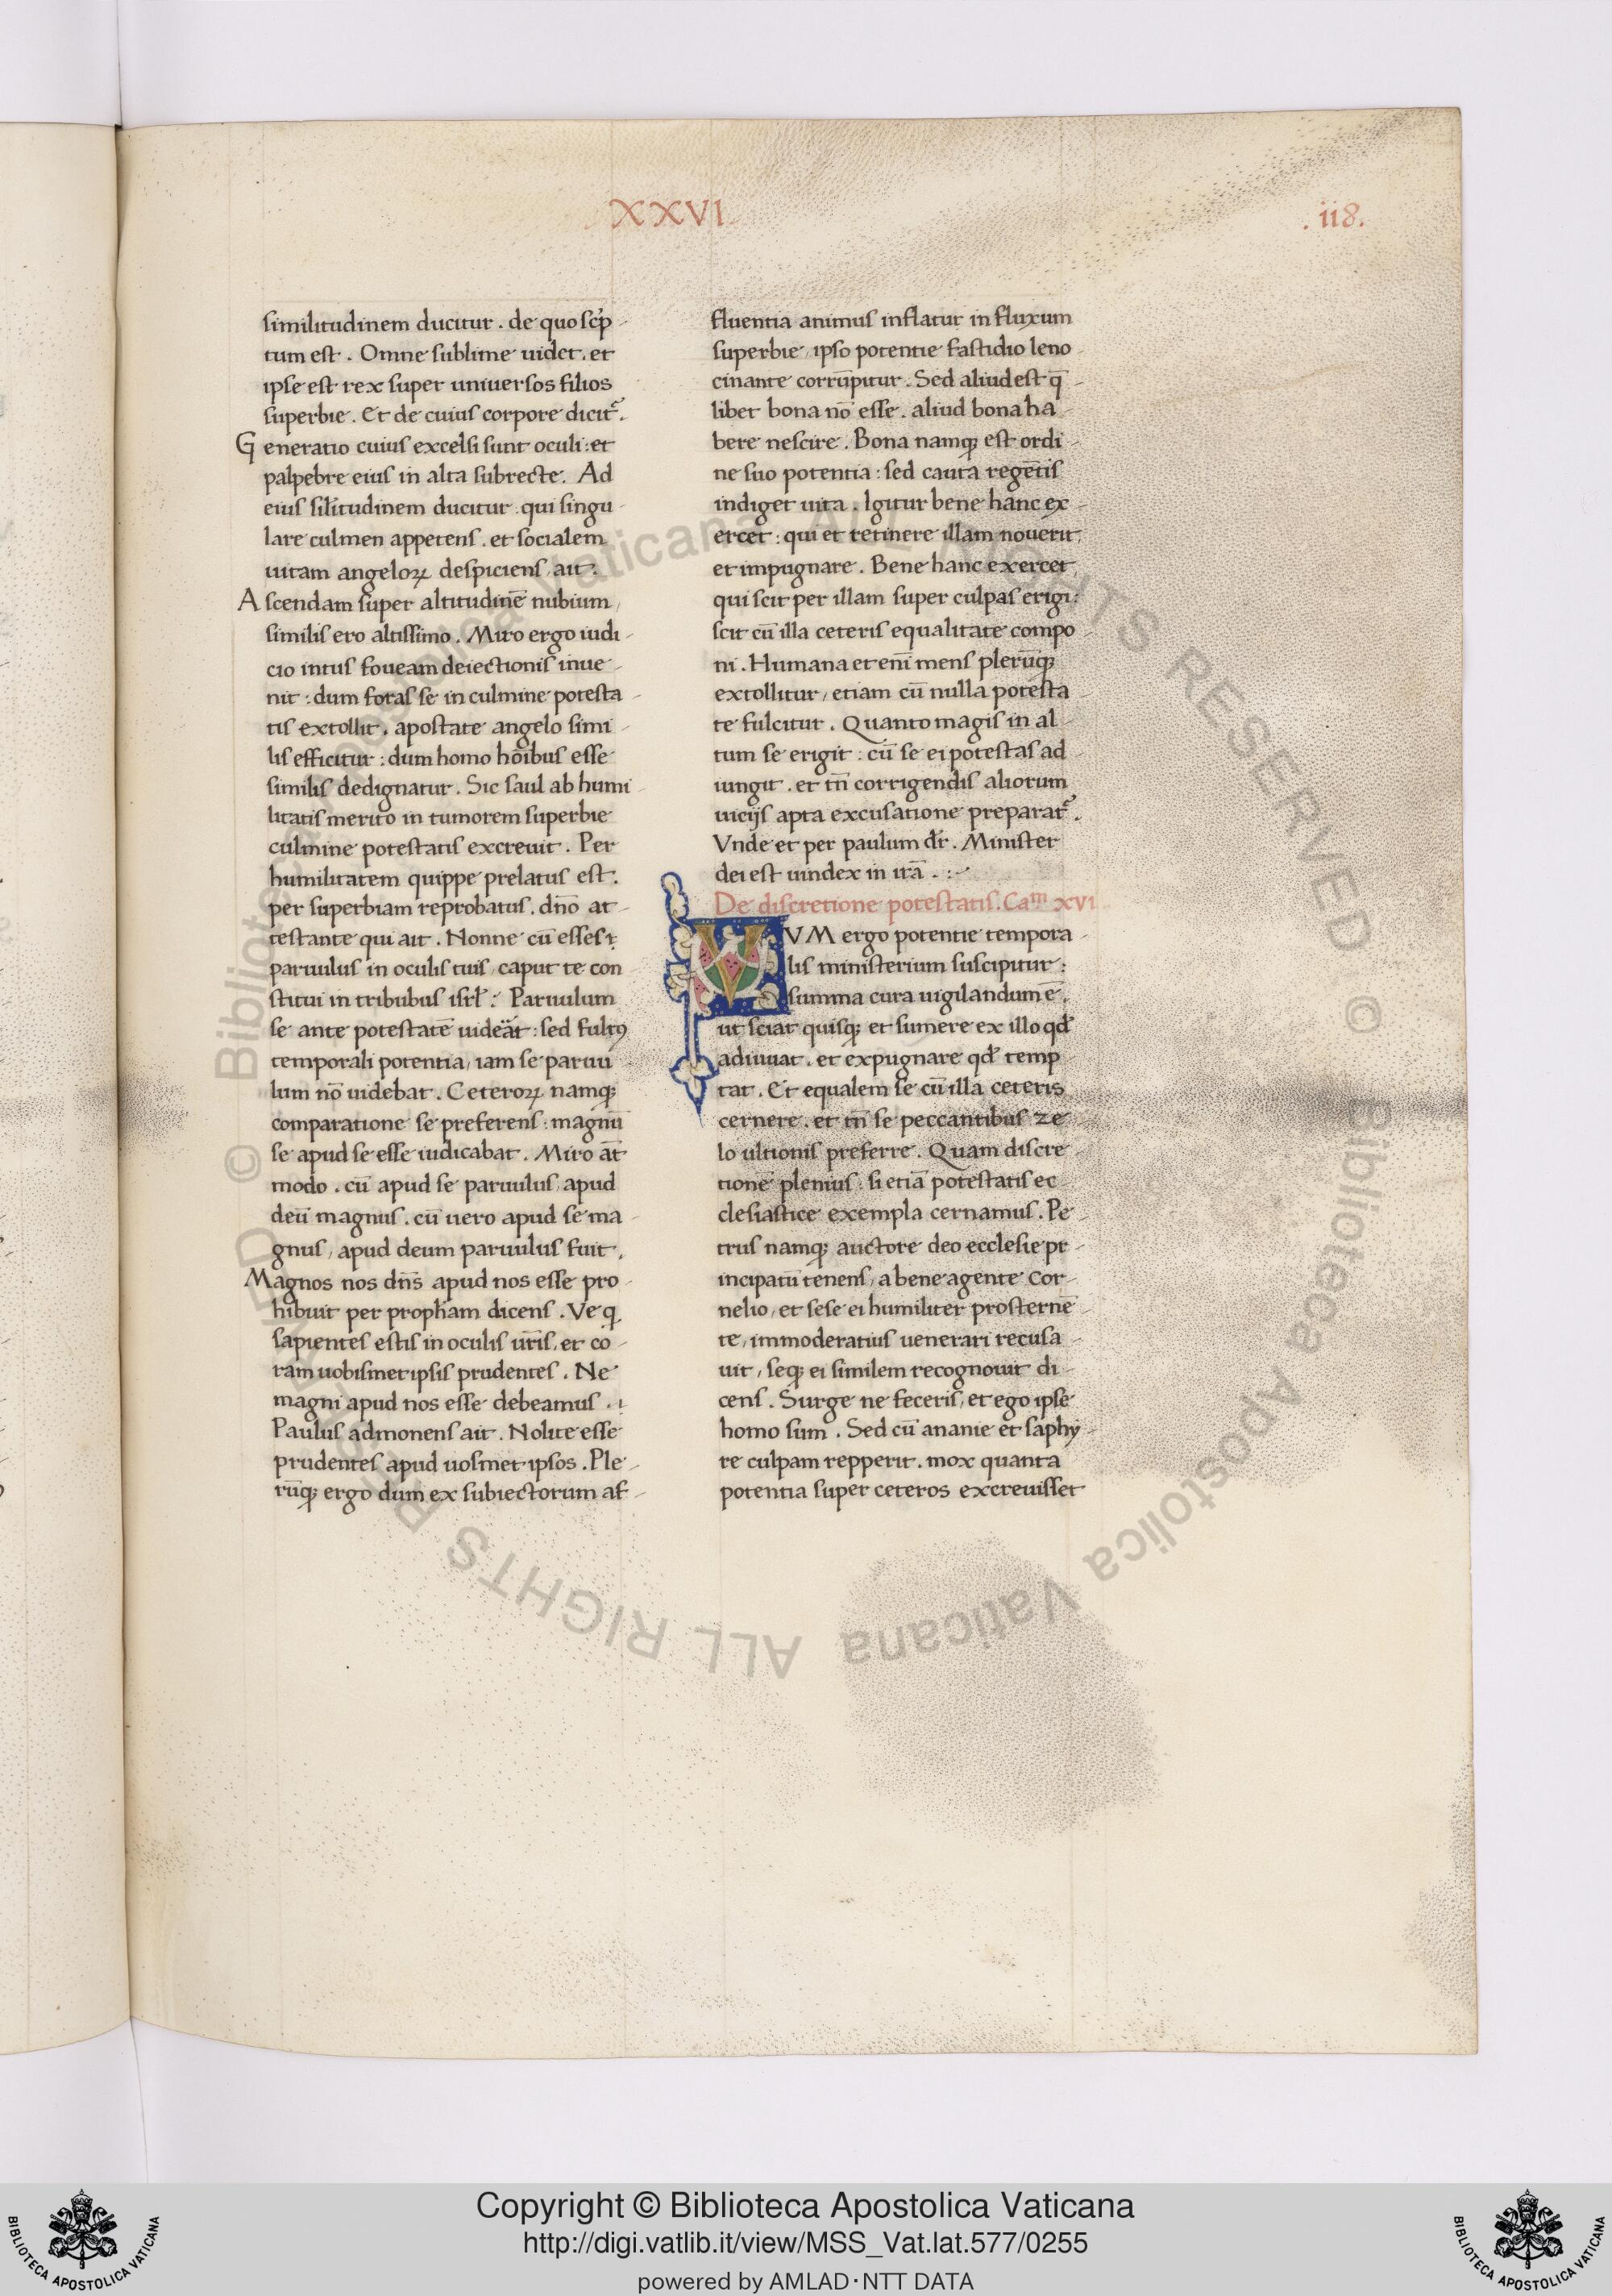 XXVI
.118.
similitudinem ducitur . de quo sc̄p
tum est . Omne sublime uidet . et
ipse est rex super uniuersos filios
superbie . Et de cuius corpore dicit᷑ .
Generatio cuius excelsi sunt oculi : et
palpebre eius in alta subrecte . Ad
eius sil̄itudinem ducitur . qui singu
lare culmen appetens . et socialem
uitam angeloꝝ despiciens , ait .
Ascendam super altitudinē nubium ,
similis ero altissimo . Miro ergo iudi
cio intus foueam deiectionis inue
nit : dum foras se in culmine potesta
tis extollit . apostate angelo simi
lis efficitur : dum homo hōibus esse
similis dedignatur . Sic saul ab humi
litatis merito in tumorem superbie
culmine potestatis excreuit . Per
humilitatem quippe prelatus est .
per superbiam reprobatus . dn̄o at
testante qui ait . Nonne cū esses
paruulus in oculis tuis , caput te con
stitui in tribubus isrl̄ . Paruulum
se ante potestatē uideāt : sed fultꝰ
temporali potentia , iam se paruu
lum nō uidebat . Ceteroꝝ namq;
comparatione se preferens : magnū
se apud se esse iudicabat . Miro āt
modo . cū apud se paruulus , apud
deū magnus . cū uero apud se ma
gnus , apud deum paruulus fuit .
Magnos nos dn̄s apud nos esse pro
hibuit per proph̄am dicens . Ve q
sapientes estis in oculis ur̄is , et co
ram uobismet ipsis prudentes . Ne
magni apud nos esse debeamus .
Paulus admonens ait . Nolite esse
prudentes apud uosmet ipsos . Ple
rūq; ergo dum ex subiectorum af
fluentia animus inflatur in fluxum
superbie , ipso potentie fastidio leno
cinante corrūpitur . Sed aliud est q̄
libet bona nō esse . aliud bona ha
bere nescire . Bona namq; est ordi
ne suo potentia : sed cauta regētis
indiget uita . Igitur bene hanc ex
ercet : qui et retinere illam nouerit ,
et impugnare . Bene hanc exercet ,
qui scit per illam super culpas erigi :
scit cū illa ceteris equalitate compo
ni . Humana et enī mens plerūq;
extollitur , etiam cū nulla potesta
te fulcitur . Quanto magis in al
tum se erigit : cū se ei potestas ad
iungit . et tn̄ corrigendis aliorum
uicijs apta excusatione preparat᷑ .
Vnde et per paulum dr̄ . Minister
dei est uindex in irā .
De discretione potestatis . Caᵐ xvi
CVM ergo potentie tempora
lis ministerium suscipitur :
summa cura uigilandum ē .
ut sciat quisq; et sumere ex illo qd̄
adiuuat . et expugnare qd̄ temp
tat . Et equalem se cū illa ceteris
cernere . et tn̄ se peccantibus ze
lo ultionis preferre . Quam discre
tionē plenius : si etiā potestatis ec
clesiastice exempla cernamus . Pe
trus namq; auctore deo ecclesie pr
incipatū tenens , a bene agente Cor
nelio , et sese ei humiliter prosternē
te , immoderatius uenerari recusa
uit , seq; ei similem recognouit di
cens . Surge ne feceris , et ego ipse
homo sum . Sed cū ananie et saphy
re culpam repperit . mox quanta
potentia super ceteros excreuisset
© Biblioteca Apostolica Vaticana ALL RIGHTS RESERVED © Biblioteca Apostolica Vaticana ALL RIGHTS RESERVED
Copyright © Biblioteca Apostolica Vaticana
http://digi.vatlib.it/view/MSS_Vat.lat.577/0255
powered by AMLAD·NTT DATA
BIBLIOTECA APOSTOLICA VATICANA
BIBLIOTECA APOSTOLICA VATICANA